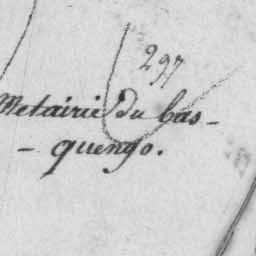 297
Metairie du bas-
- quengo.